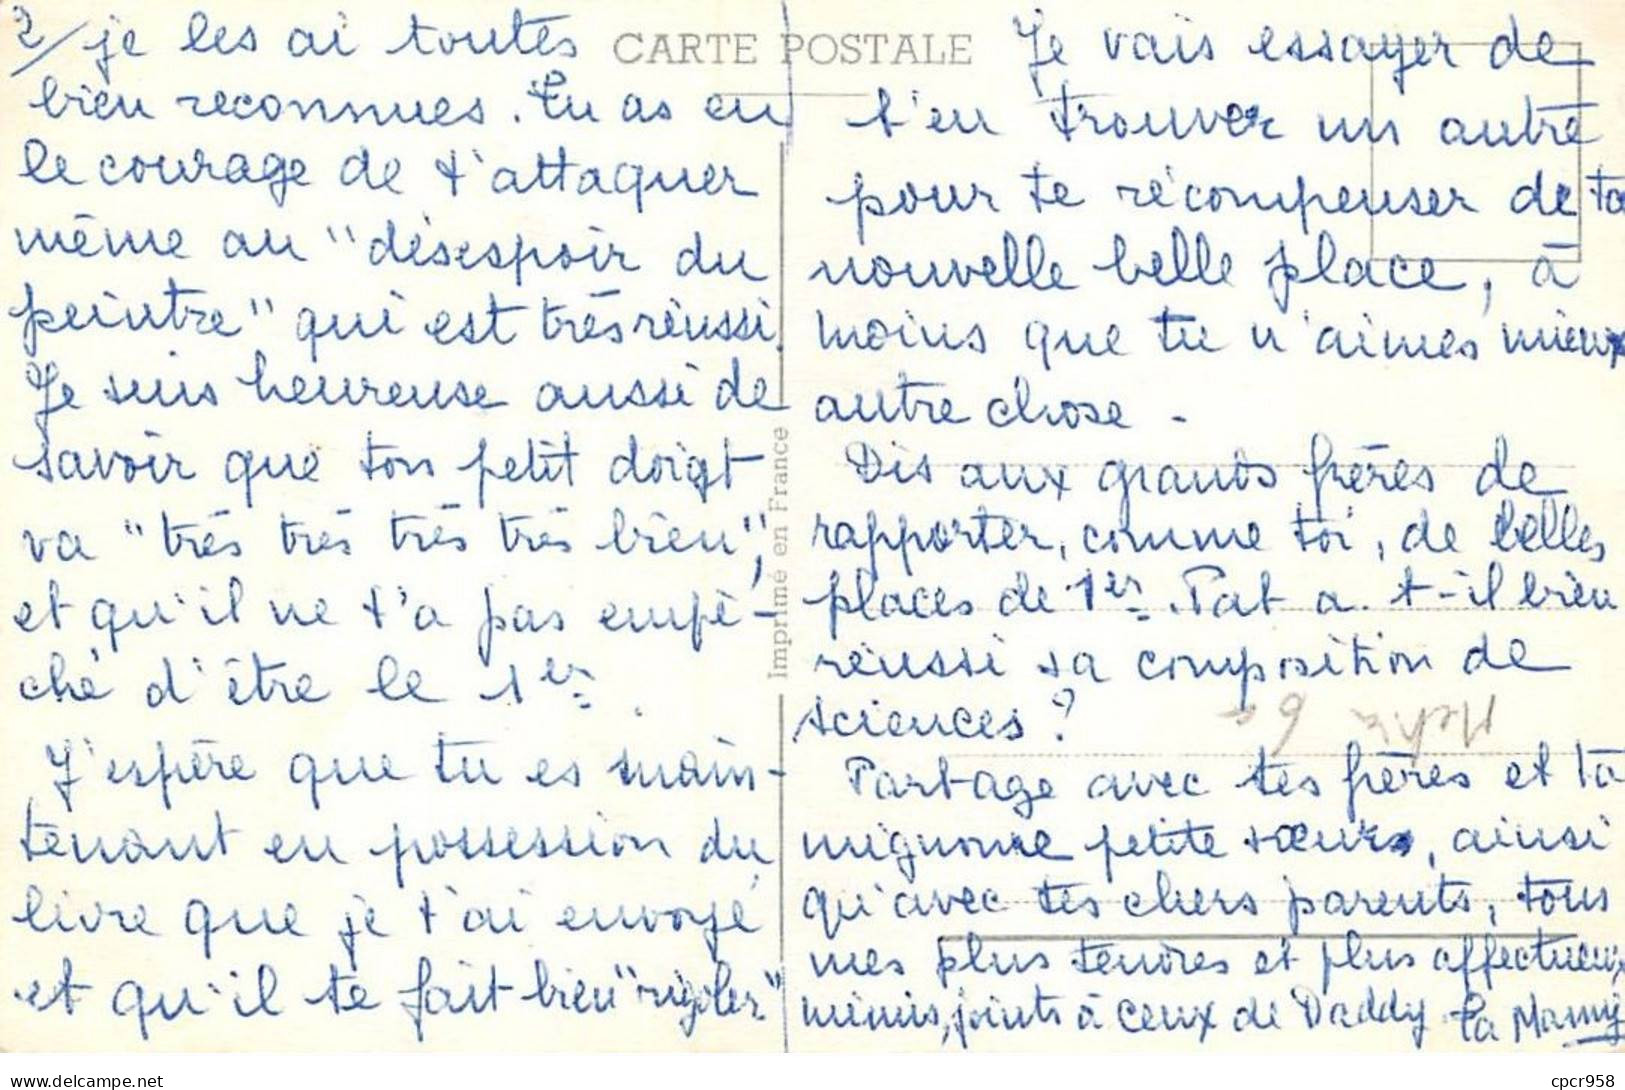 2/ je les ai toutes
bien reconnues. Tu as eu
le courage de t'attaquer
même au "désespoir du
peintre" qui est très réussi.
Je suis heureuse aussi de
savoir que ton petit doigt
va "très très très très bien",
et qu'il ne t'a pas empê-
ché d'être le 1er.
J'espère que tu es main-
tenant en possession du
livre que je t'ai envoyé
et qu'il te fait bien "rigoler"
CARTE POSTALE
Imprimé en France
Je vais essayer de
t'en trouver un autre
pour te récompenser de ta
nouvelle belle place, à
moins que tu n'aimes mieux
autre chose -
Dis aux grands frères de
rapporter, comme toi, de belles
places de 1er. Pat a-t-il bien
réussi sa composition de
sciences ?
Partage avec tes frères et ta
mignonne petite sœur, ainsi
qu'avec tes chers parents, tous
mes plus tendres et plus affectueux
mimis, joints à ceux de Daddy. Ta Mamy
cpcr958